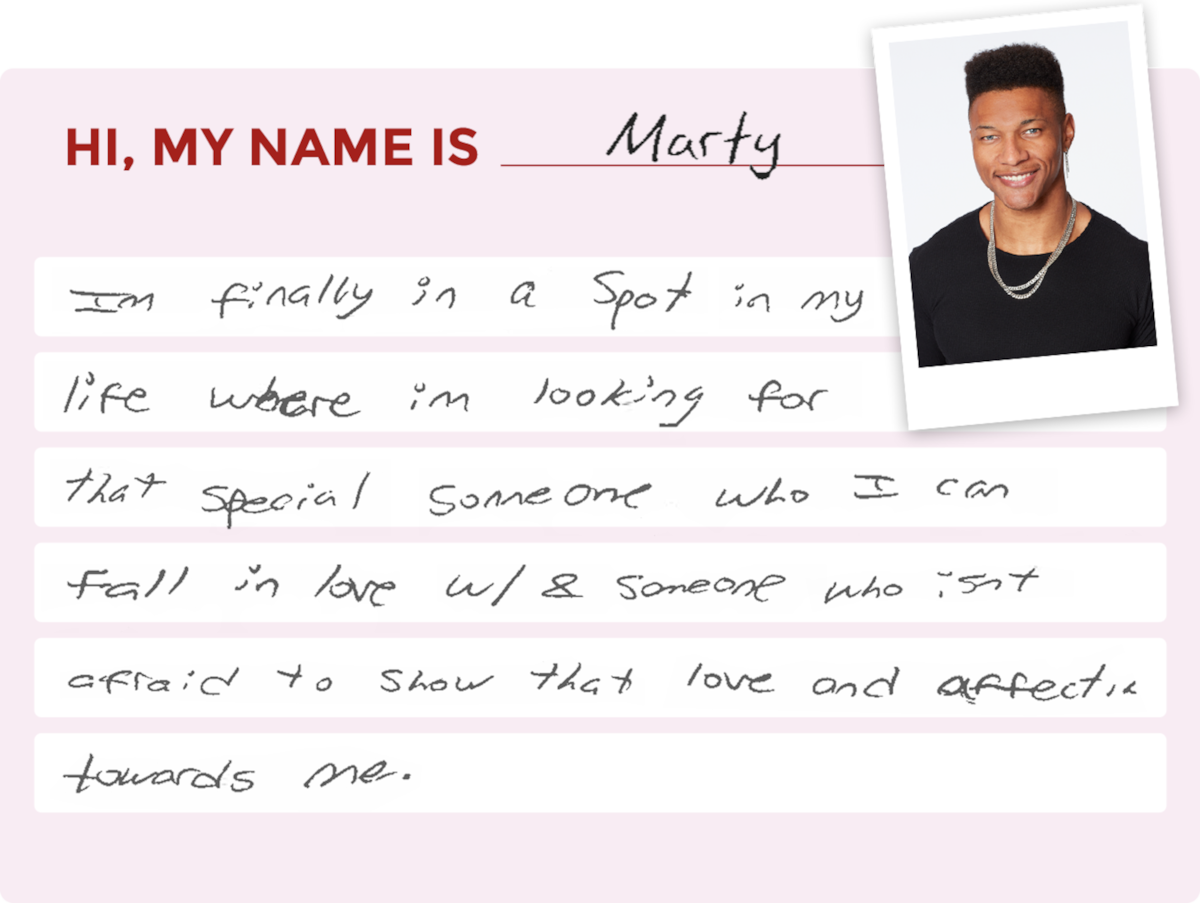 HI, MY NAME IS Marty
Im finally in a Spot in my
life where im looking for
that special someone who I can
fall in love w/ & someone who isnt
afraid to show that love and
towards me.